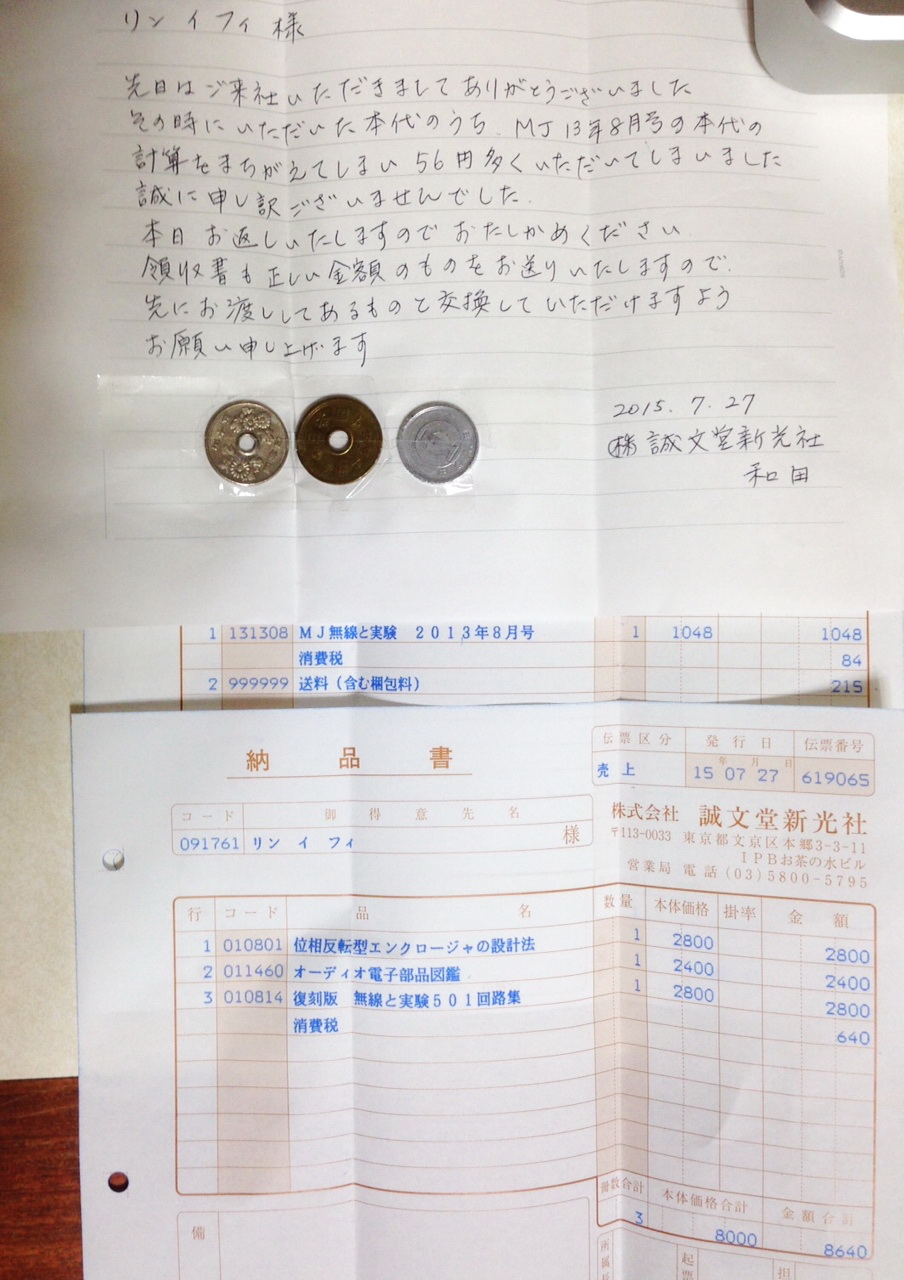 リン イ フィ 様
先日はご来社いただきましてありがとうございました
その時にいただいた本代のうち、MJ 13年8月号の本代の
計算をまちがえてしまい 56円多くいただいてしまいました
誠に申し訳ございませんでした.
本日 お返しいたしますので おたしかめください
領収書も正しい金額のものをお送りいたしますので、
先にお渡ししてあるものと交換していただけますよう
お願い申し上げます
2015. 7. 27
㈱誠文堂新光社
和田
1 131308 MJ無線と実験 2013年8月号 1 1048 1048
消費税 84
2 999999 送料(含む梱包料) 215
納品書
伝票区分 発行日 伝票番号
売上 15年07月27日 619065
コード 御得意先名
091761 リン イ フィ 様
株式会社 誠文堂新光社
〒113-0033 東京都文京区本郷3-3-11
IPBお茶の水ビル
営業局 電話(03)5800-5795
行 コード 品名 数量 本体価格 掛率 金額
1 010801 位相反転型エンクロージャの設計法 1 2800 2800
2 011460 オーディオ電子部品図鑑 1 2400 2400
3 010814 復刻版 無線と実験501回路集 1 2800 2800
消費税 640
冊数合計 本体価格合計 金額合計
3 8000 8640
備